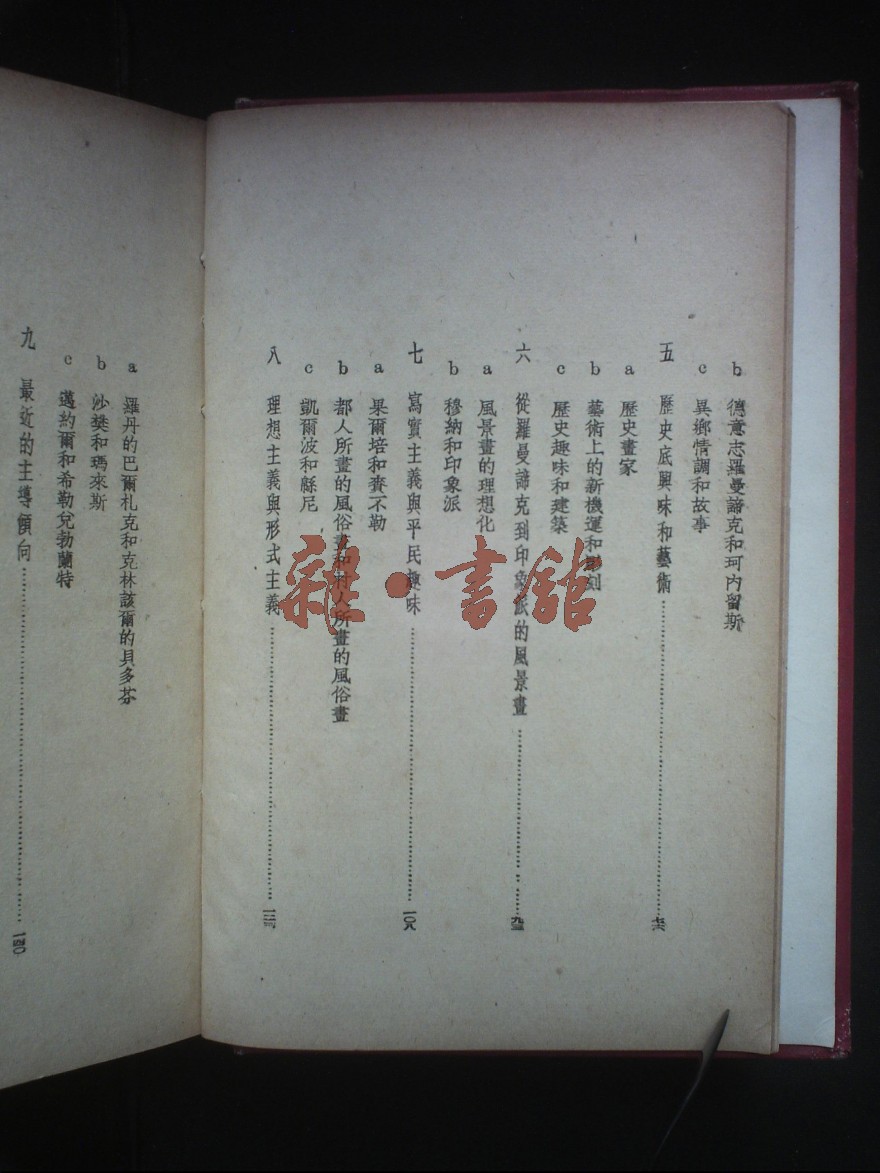 b 德意志羅曼諦克和珂內留斯
c 異鄉情調和故事
五 歷史底興味和藝術……七六
a 歷史畫家
b 藝術上的新機運和彫刻
c 歷史趣味和建築
六 從羅曼諦克到印象派的風景畫……
a 風景畫的理想化
b 穆納和印象派
七 寫實主義與平民趣味……一〇八
a 果爾培和賚不勒
b 都人所畫的風俗畫和村人所畫的風俗畫
c 凱爾波和緜尼
八 理想主義與形式主義……
a 羅丹的巴爾札克和克林該爾的貝多芬
b 沙樊和瑪來斯
c 邁約爾和希勒兌勃蘭特
九 最近的主導傾向……
雜·書館